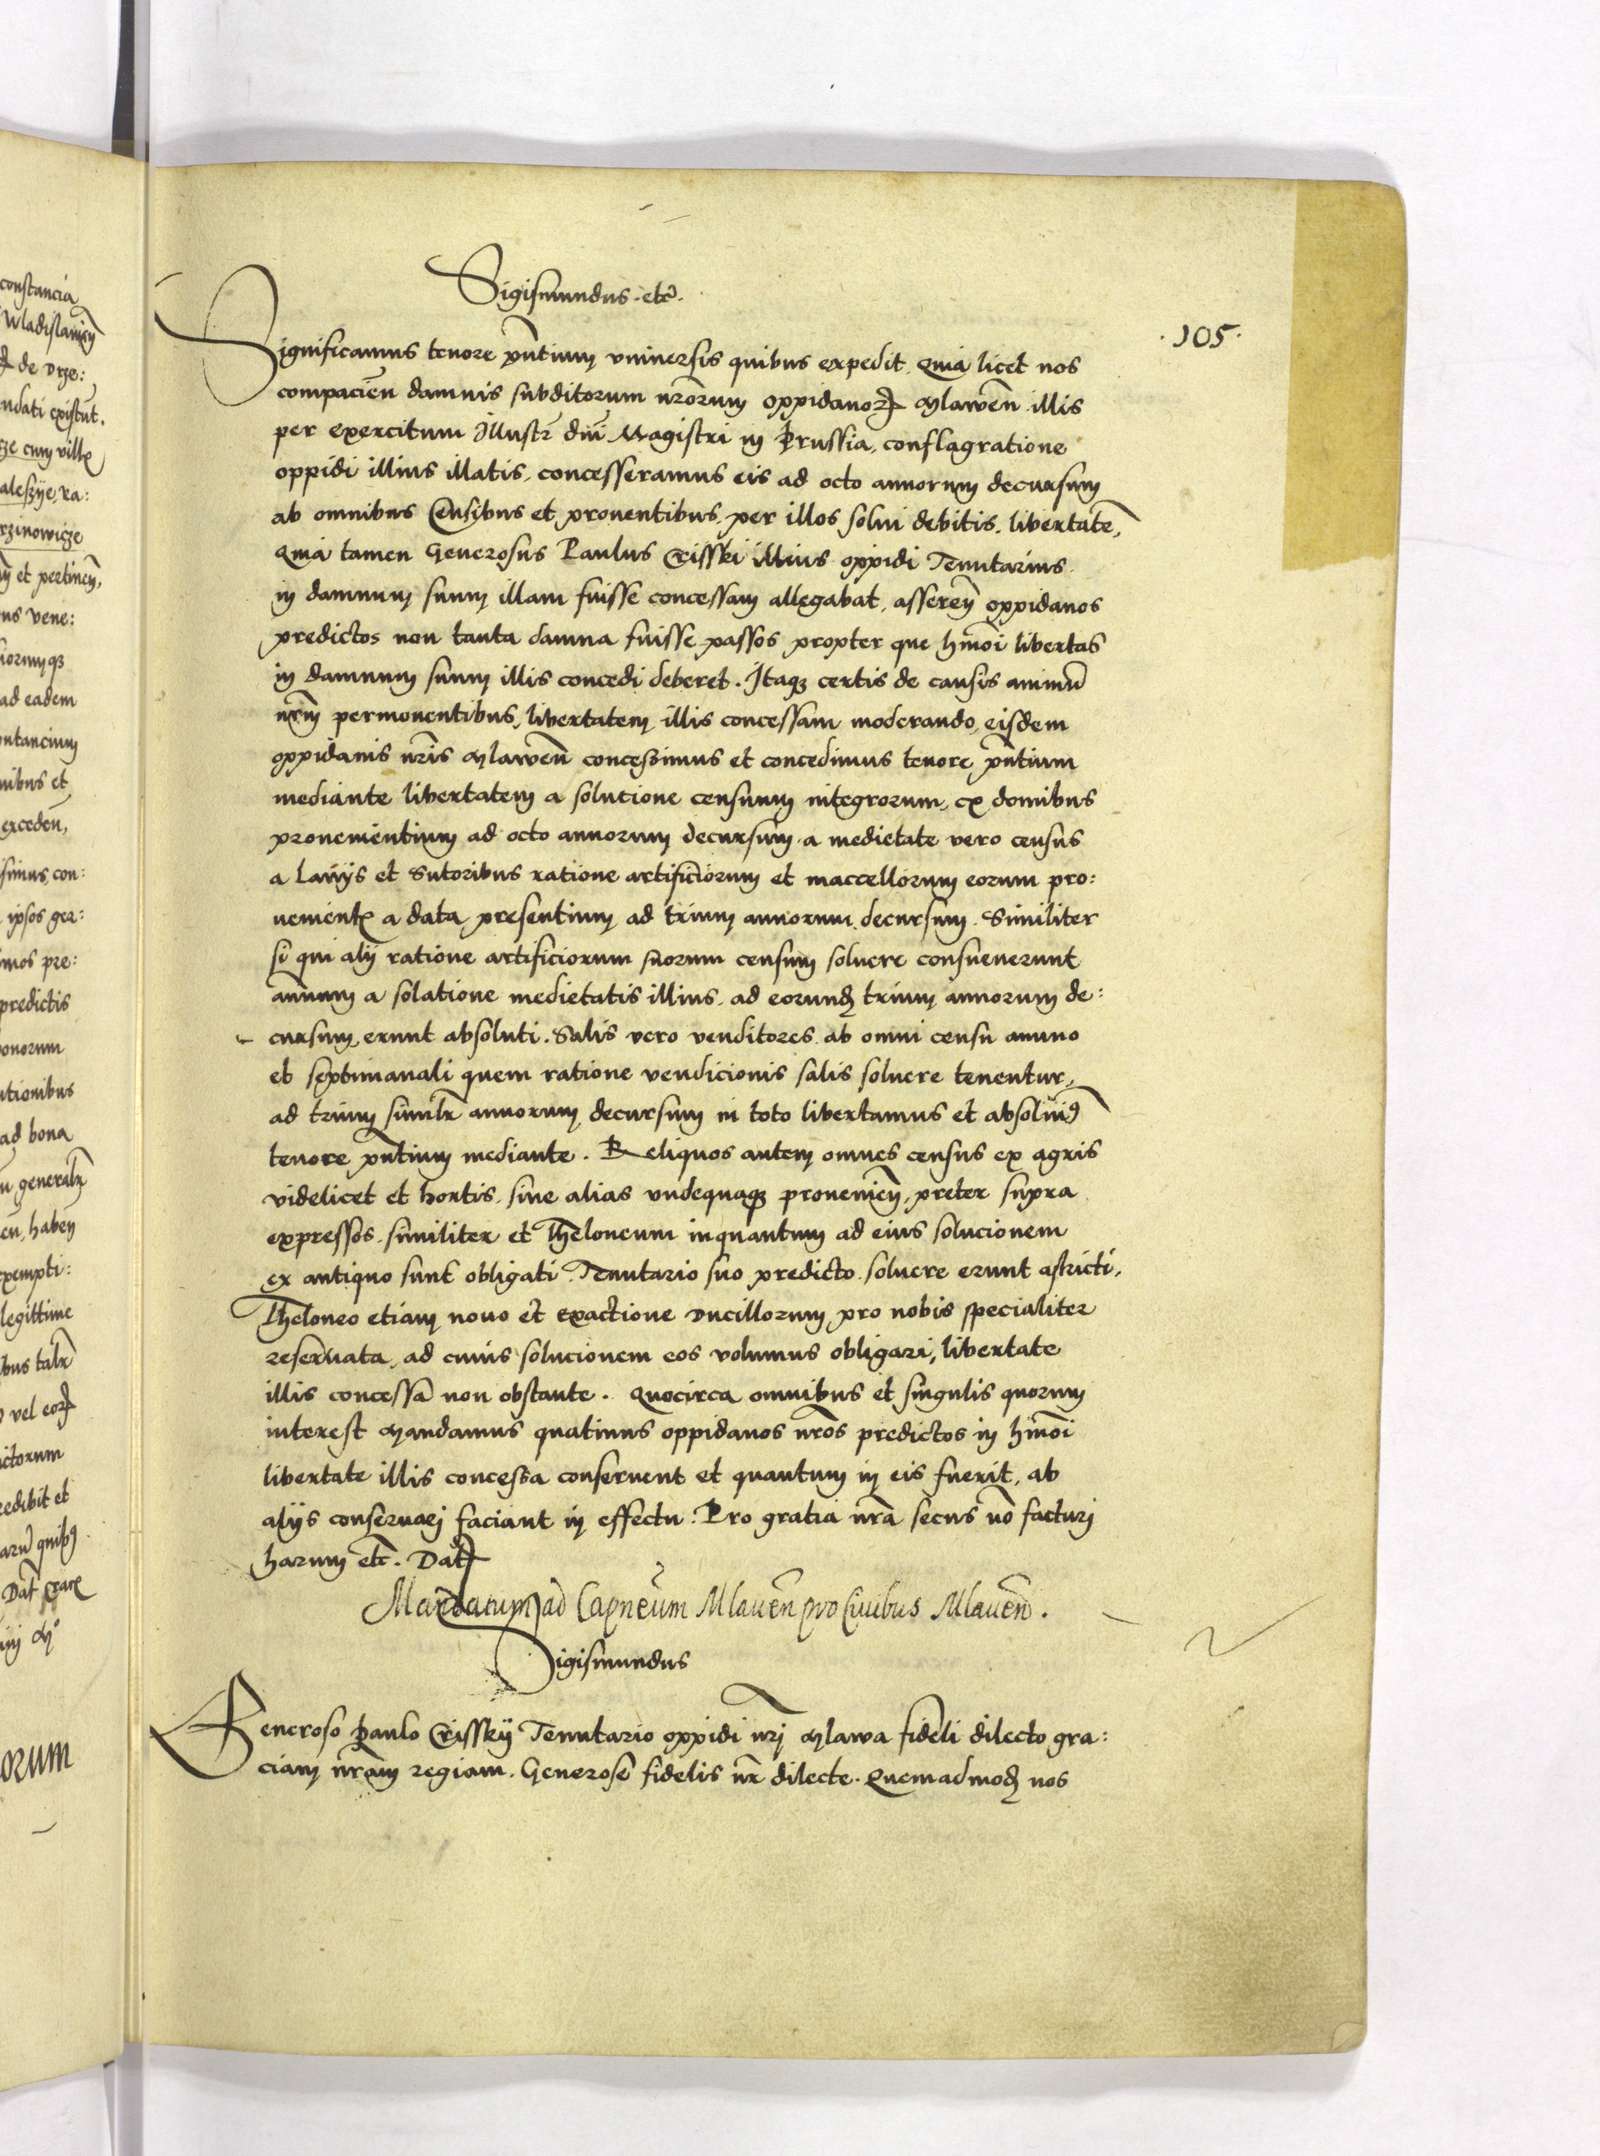 Sigismundus · etc̃ ·
· 105 ·
Significamus tenore pñtium vniuersis quibus expedit, quia licet nos
compacieñ damnis subditorum nrõrum oppidanoꝝ Mlaweñ illis
per exercitum Illustr̃ dñi Magistri in Prussia, conflagratione
oppidi illius illatis, concesseramus eis ad octo annorum decursum
ab omnibus Censibus et prouentibus, per illos solui debitis, libertatẽ,
quia tamen Generosus Paulus Crisski illius oppidi Tenutarius
in damnum suum illam fuisse concessam allegabat, assereñ oppidanos
predictos non tanta damna fuisse passos propter que hm̃oi libertas
in damnum suum illis concedi deberet. Itaqȝ certis de causis animũ
nrm̃ permouentibus, libertatem illis concessam moderando, eisdem
oppidanis nrĩs Mlaweñ concessimus et concedimus tenore pñtium
mediante libertatem a solutione censuum integrorum, ex domibus
prouenientium ad octo annorum decursum, a medietate vero census
a Lanijs et Sutoribus ratione artificiorum et maccellorum eorum pro:
uenientꝭ a data presentium ad trium annorum decursum. Similiter
si qui alij ratione artificiorum suorum censum soluere consueuerunt
annuum a solatione medietatis illius, ad eorundȝ trium annorum de:
cursum, erunt absoluti. Salis vero venditores ab omni censu annuo
et septimanali quem ratione vendicionis salis soluere tenentur,
ad trium similr̃ annorum decursum in toto libertamus et absoluimꝰ
tenore pñtium mediante. Reliquos autem omnes census ex agris
videlicet et hortis, siue alias vndequaqȝ prouenieñ, preter supra
expressos, similiter et Theloneum inquantum ad eius solucionem
ex antiquo sunt obligati Tenutario suo predicto soluere erunt astricti,
Theloneo etiam nouo et exactione ducillorum pro nobis specialiter
reseruata, ad cuius solucionem eos volumus obligari, libertate
illis concessa non obstante. Quocirca omnibus et singulis quorum
interest Mandamus quatinus oppidanos nrõs predictos in hm̃oi
libertate illis concessa conseruent et quantum in eis fuerit, ab
alijs conseruari faciant in effectu. Pro gratia nrã secus nõ facturi
harum etc̃. Datꝭ
Mandatum ad Capneum Mlaueñ pro Ciuibus Mlaueñ.
Sigismundus
Generoso Paulo Crisskij Tenutario oppidi nrĩ Mlawa fideli dilecto gra:
ciam nrãm regiam. Generose fidelis nr̃ dilecte. Quemadmodȝ nos